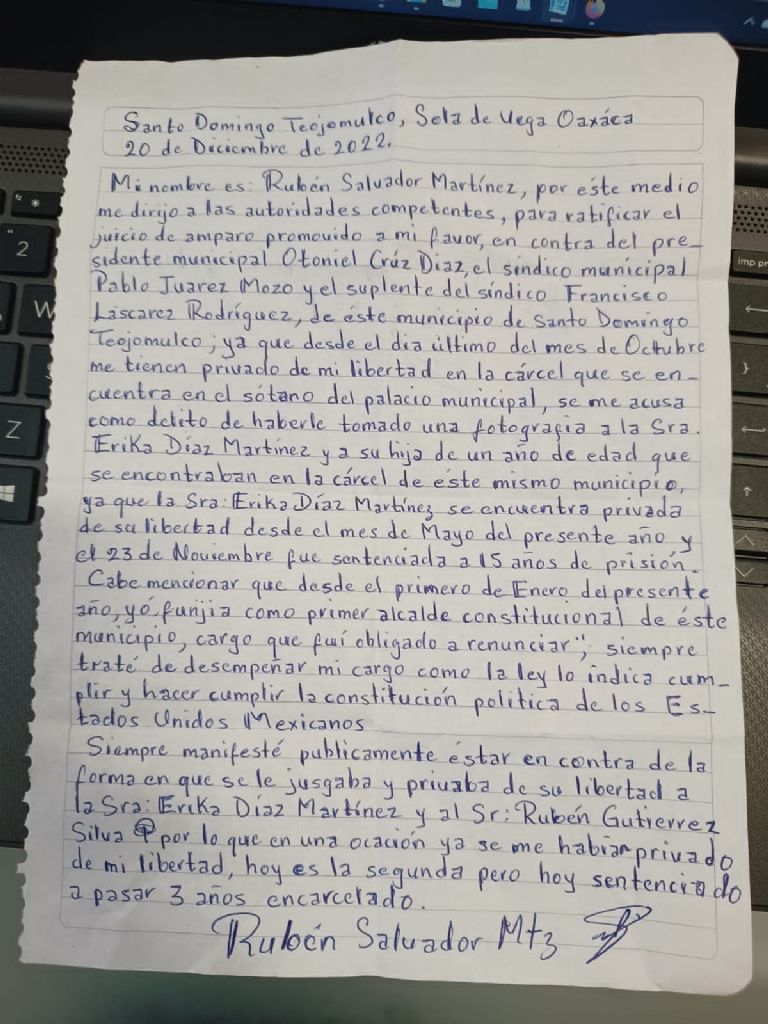 Santo Domingo Teojomulco, Sola de Vega Oaxáca
20 de Diciembre de 2022.
Mi nombre es: Rubén Salvador Martínez, por este medio
me dirijo a las autoridades competentes, para ratificar el
juicio de amparo promovido a mi favor, en contra del pre-
sidente municipal Otoniel Crúz Díaz, el síndico municipal
Pablo Juarez Mozo y el suplente del síndico Francisco
Láscarez Rodríguez, de éste municipio de Santo Domingo
Teojomulco; ya que desde el dia último del mes de Octubre
me tienen privado de mi libertad en la cárcel que se en-
cuentra en el sótano del palacio municipal, se me acusa
como delito de haberle tomado una fotografia a la Sra.
Erika Díaz Martínez y a su hija de un año de edad que
se encontraban en la cárcel de éste mismo municipio,
ya que la Sra: Erika Díaz Martínez se encuentra privada
de su libertad desde el mes de Mayo del presente año y
el 23 de Noviembre fue sentenciada a 15 años de prisión.
Cabe mencionar que desde el primero de Enero del presente
año, yó funjia como primer alcalde constitucional de éste
municipio, cargo que fuí obligado a renunciar", siempre
traté de desempeñar mi cargo como la ley lo indica cum-
plir y hacer cumplir la constitución politica de los Es-
tados Unidos Mexicanos
Siempre manifesté publicamente éstar en contra de la
forma en que se le jusgaba y privaba de su libertad a
la Sra: Erika Díaz Martínez y al Sr: Rubén Gutierrez
Silva por lo que en una ocación ya se me habian privado
de mi libertad, hoy es la segunda pero hoy sentenciado
a pasar 3 años encarcelado.
Rubén Salvador Mtz
"
2
*
W
Z
imp pr